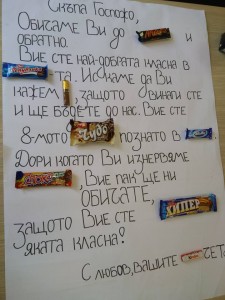 Скъпа Госпожо,
Обичаме Ви до и
обратно.
Вие сте най-добрата класна в
та. Искаме да Ви
кажем , защото винаги сте
и ще бъдете до нас. Вие сте
8-мото Чудо познато в .
Дори когато Ви изнервяме
, Вие пак ще ни
обичате, ХИПЕР
защото Вие сте
яката класна!
С любов, Вашите чета